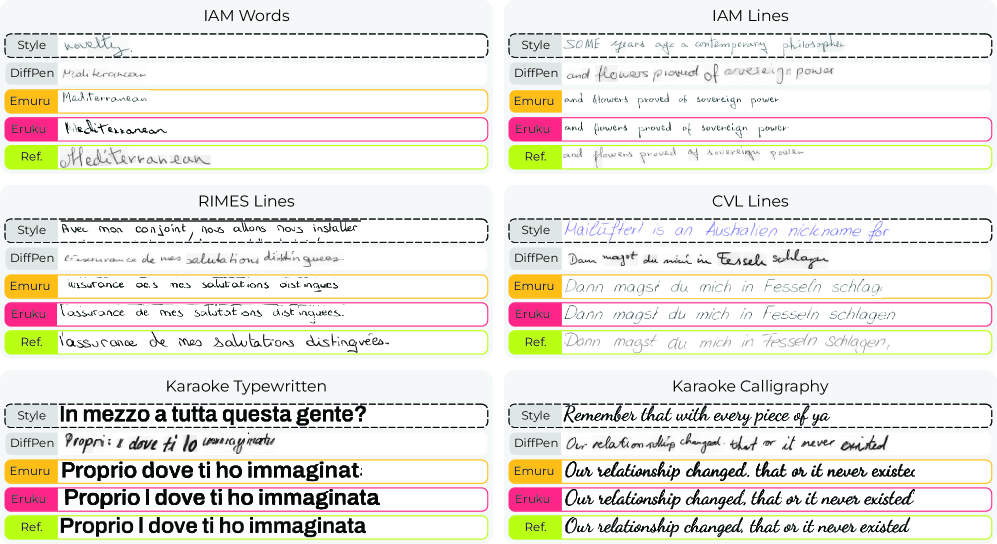 IAM Words
Style novelty.
DiffPen Mediterranean
Emuru Mediterranean
Eruku Mediterranean
Ref. Mediterranean
IAM Lines
Style SOME years ago a contemporary philosopher
DiffPen and flowers proved of power
Emuru and flowers proved of sovereign power
Eruku and flowers proved of sovereign power
Ref. and flowers proved of sovereign power
RIMES Lines
Style Avec mon conjoint, nous allons nous installer
DiffPen de mes salutations distinguees
Emuru mes salutations distingues
Eruku l'assurance de mes salutations distinguées.
Ref. l'assurance de mes salutations distinguées.
CVL Lines
Style Mailüfterl is an Australien nickname for
DiffPen Dann magst du mici in Fesseln schlagen
Emuru Dann magst du mich in Fesseln schlag
Eruku Dann magst du mich in Fesseln schlagen
Ref. Dann magst du mich in Fesseln schlagen,
Karaoke Typewritten
Style In mezzo a tutta questa gente?
DiffPen dove ti lo
Emuru Proprio dove ti ho immaginat
Eruku Proprio l dove ti ho immaginata
Ref. Proprio l dove ti ho immaginata
Karaoke Calligraphy
Style Remember that with every piece of ya
DiffPen Our relationship changed. that or it never existed
Emuru Our relationship changed. that or it never existed
Eruku Our relationship changed, that or it never existed
Ref. Our relationship changed, that or it never existed